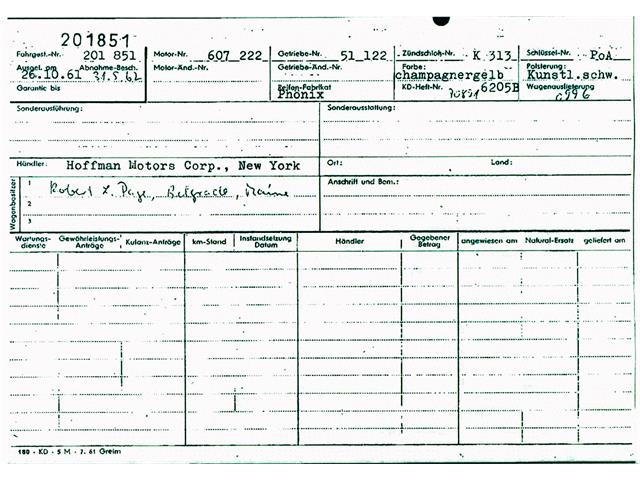 201851
Fahrgest.-Nr. 201 851 Motor-Nr. 607 222 Getriebe-Nr. 51 122 Zündschloß-Nr. K 313 Schlüssel-Nr. PoA
Ausgel. am Abnahme-Besch. Motor-Änd.-Nr. Getriebe-Änd.-Nr. Farbe: Polsterung:
26.10.61 31.5.62 champagnergelb Kunstl.schw.
Garantie bis Reifen-Fabrikat KD-Heft-Nr. 6205B Wagenauslieferung
Phönix 70851
Sonderausführung: Sonderausstattung:
Händler: Hoffman Motors Corp., New York Ort: Land:
Wagenbesitzer 1 Robert L. Page, Belgrade, Maine Anschrift und Bem.:
2
3
Wartungs-dienste Gewährleistungs-Anträge Kulanz-Anträge km-Stand Instandsetzung Datum Händler Gegebener Betrag angewiesen am Natural-Ersatz geliefert am
180 - KD - 5 M - 7. 61 Greim